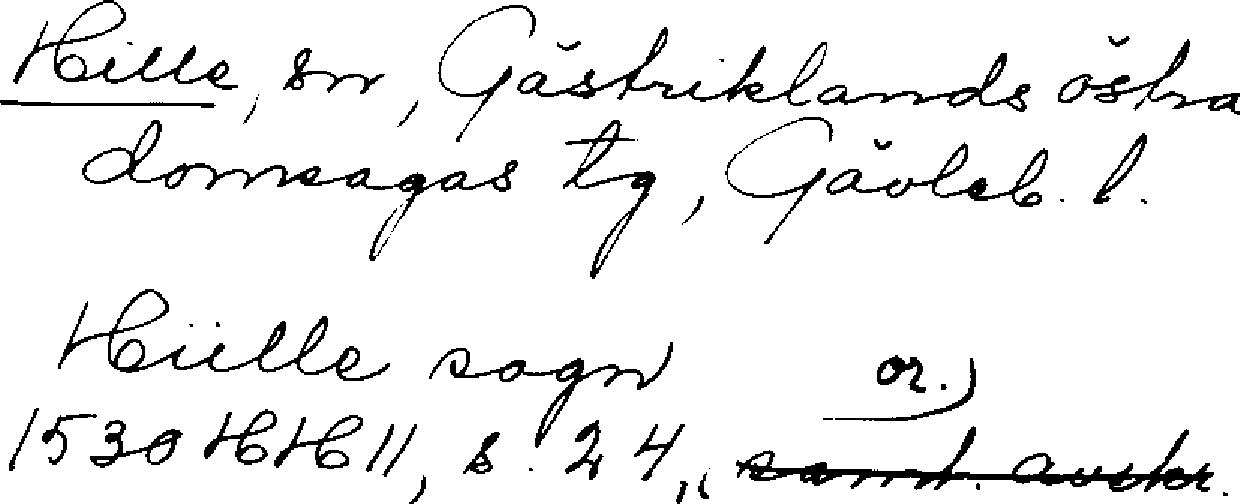 Hille, sn, Gästriklands östra
domsagas tg, Gävleb. l.
Hülle sogn or.)
1530 HH 11, s. 24, samt. avskr.